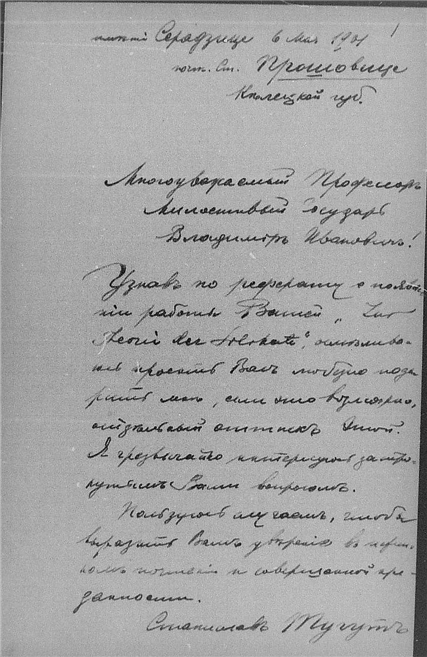 имѣніе Серадзице 6 Мая 1901
почт. ст. Прошовице
Кѣлецкой губ.
Многоуважаемый Профессоръ
Милостивый Государь
Владиміръ Ивановичъ!
Узнавъ по реферату о появле-
ніи работы Вашей „Zur
Theorie der Silikate", осмѣлива-
юсь просить Васъ любезно пода-
рить мнѣ, если это возможно,
отдѣльный оттискъ оной.
Я чрезвычайно интересуюсь затро-
нутымъ Вами вопросомъ.
Пользуюсь случаемъ, чтобы
выразить Вамъ увѣреніе въ
почтеніи и совершенной пре-
данности.
Станиславъ Тугутъ